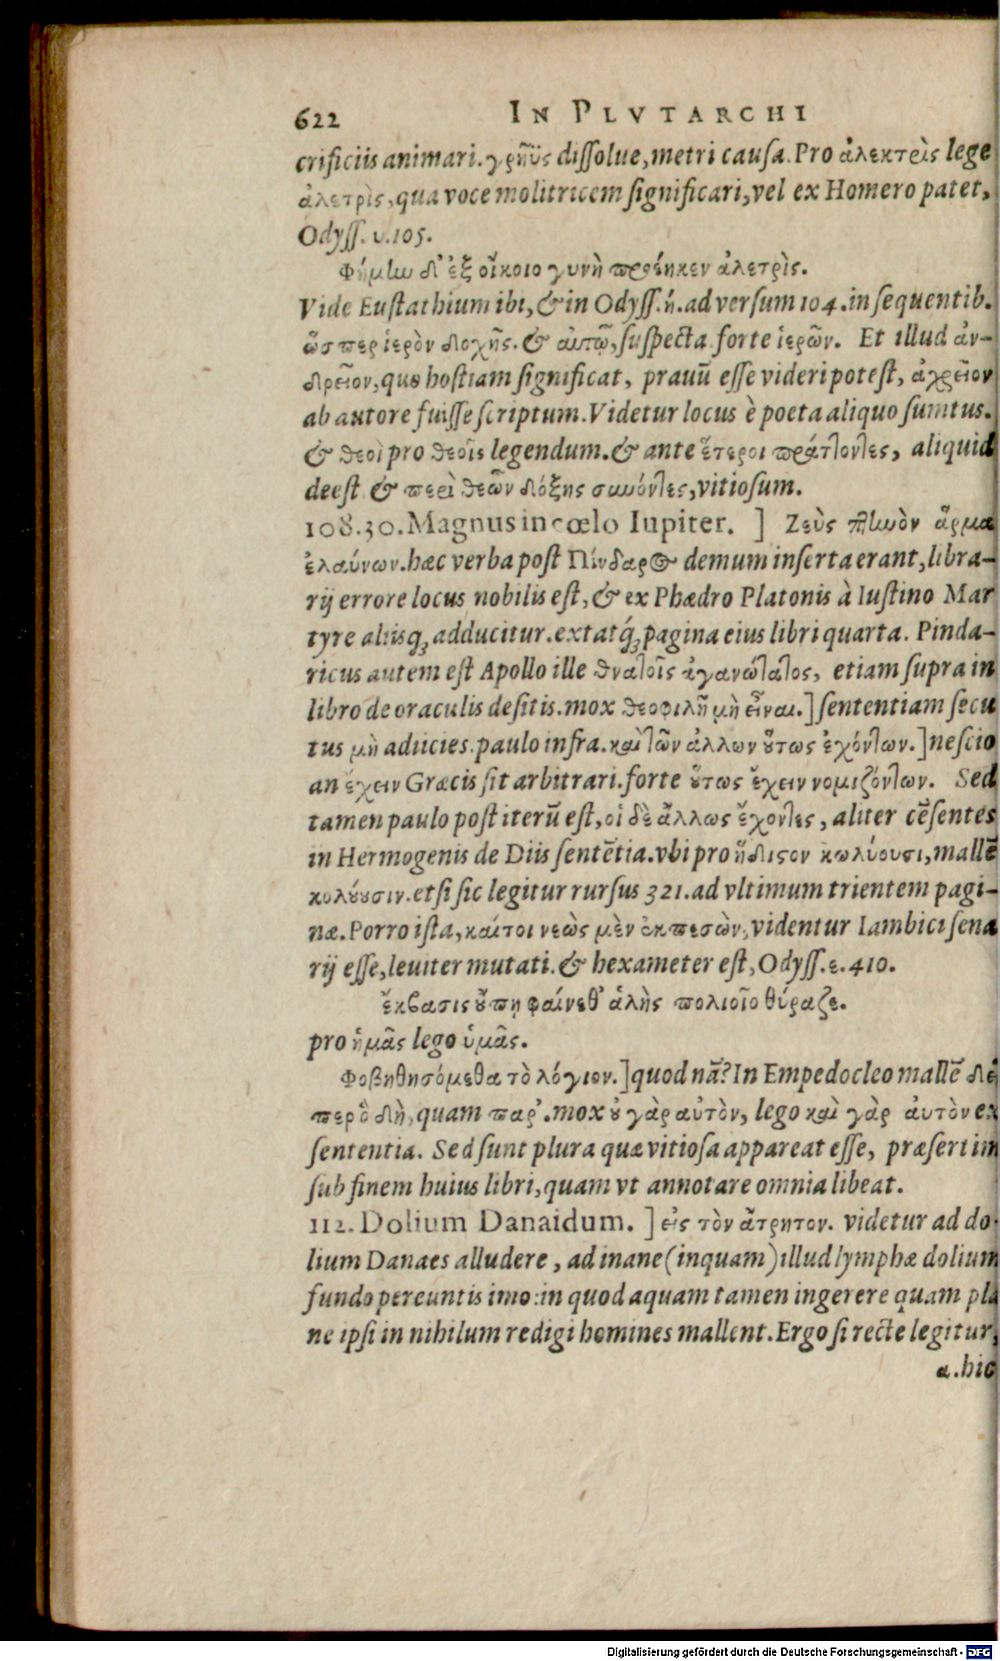 622 IN PLVTARCHI
crificiis animari. γρηῢς dissolue, metri causa. Pro ἀλεκτρὶς lege
ἀλετρὶς, qua voce molitricem significari, vel ex Homero patet,
Odyss. υ. 105.
Φήμην δ' ἐξ οἴκοιο γυνὴ προέηκεν ἀλετρὶς.
Vide Eustathium ibi, & in Odyss. ή. ad versum 104. in sequentib.
ὥσπερ ἱερὸν δοχῆς. & αὐτῷ, suspecta forte ἱερῶν. Et illud ἀν-
δρεῖον, quo hostiam significat, prauū esse videri potest, ἀχρεῖον
ab autore fuisse scriptum. Videtur locus è poeta aliquo sumtus.
& θεοὶ pro θεοῖς legendum. & ante ἕτεροι πράττοντες, aliquid
deest & περὶ θεῶν δόξης συνόντες, vitiosum.
108.30. Magnus in cœlo Iupiter. ] Ζεὺς πτηνὸν ἅρμα
ἐλαύνων. hæc verba post Πίνδαρος demum inserta erant, libra-
rij errore locus nobilis est, & ex Phædro Platonis à Iustino Mar
tyre aliisq; adducitur. extatq́; pagina eius libri quarta. Pinda-
ricus autem est Apollo ille θνατοῖς ἀγανώτατος, etiam supra in
libro de oraculis desitis. mox θεοφιλῆ μὴ εἶναι. ] sententiam secu
tus μὴ adiicies. paulo infra. καὶ τῶν ἄλλων οὕτως ἐχόντων. ] nescio
an ἔχειν Græcis sit arbitrari. forte οὕτως ἔχειν νομιζόντων. Sed
tamen paulo post iterū est, οἱ δὲ ἄλλως ἔχοντες, aliter cēsentes
in Hermogenis de Diis sentētia. vbi pro ἥδιστον κωλύουσι, mallē
κολούουσιν. etsi sic legitur rursus 321. ad vltimum trientem pagi-
næ. Porro ista, καίτοι νεὼς μὲν ἐκπεσὼν, videntur Iambici sena
rij esse, leuiter mutati. & hexameter est, Odyss. ε. 410.
ἔκβασις οὔπῃ φαίνεθ' ἁλὴς πολιοῖο θύραζε.
pro ἡμᾶς lego ὑμᾶς.
Φοβηθησόμεθα τὸ λόγιον. ] quod nā? In Empedocleo mallē δέ
περ ὃ δὴ, quam παρ'. mox οὐ γὰρ αὐτὸν, lego καὶ γὰρ αὐτὸν ex
sententia. Sed sunt plura quæ vitiosa appareat esse, præsertim
sub finem huius libri, quam vt annotare omnia libeat.
112. Dolium Danaidum. ] εἰς τὸν ἄτρητον. videtur ad do-
lium Danaes alludere, ad inane (inquam) illud lymphæ dolium
fundo pereuntis imo: in quod aquam tamen ingerere quam pla
ne ipsi in nihilum redigi homines mallent. Ergo si recte legitur,
a. hic
Digitalisierung gefördert durch die Deutsche Forschungsgemeinschaft - DFG